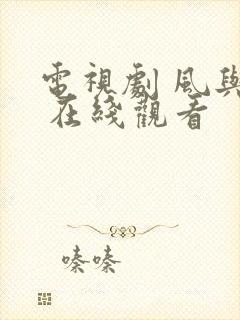 電視劇風與
在綫觀看
嗪嗪